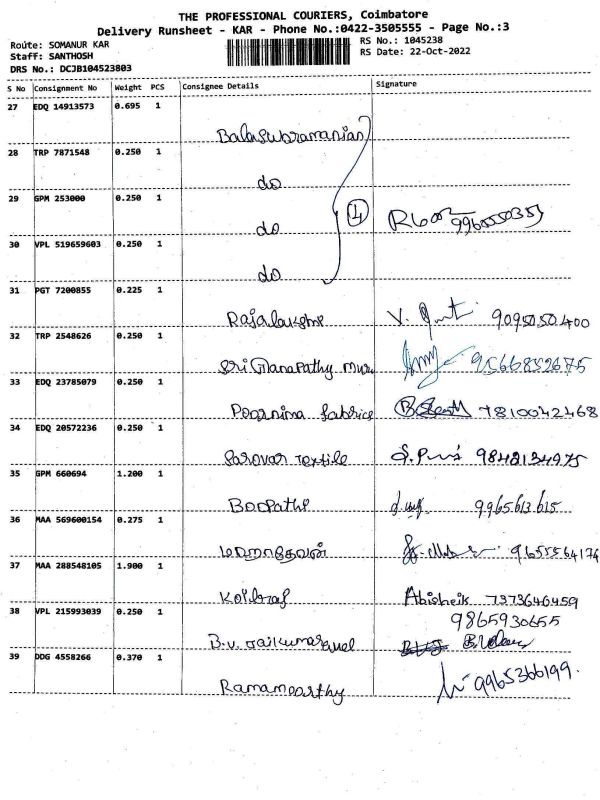 THE PROFESSIONAL COURIERS, Coimbatore
Delivery Runsheet - KAR - Phone No.:0422-3505555 - Page No.:3
Route: SOMANUR KAR
RS No.: 1045238
Staff: SANTHOSH
RS Date: 22-Oct-2022
DRS No.: DCJB104523803
S No Consignment No Weight PCS Consignee Details Signature
27 EDQ 14913573 0.695 1
Balasubramanian
28 TRP 7871548 0.250 1
do
29 GPM 253000 0.250 1
do 4
30 VPL 519659603 0.250 1
do
31 PGT 7200855 0.225 1
Rajalakshmi 9095050400
32 TRP 2548626 0.250 1
Sri Ganapathy 9566852675
33 EDQ 23785079 0.250 1
Poornima fabrics 7810042468
34 EDQ 20572236 0.250 1
Sarovar Textile 9842134975
35 GPM 660694 1.200 1
Boopathi 9965613615
36 MAA 569600154 0.275 1
37 MAA 288548105 1.900 1
Abisheik 7373646459
9865930655
38 VPL 215993039 0.250 1
B.V.
39 DDG 4558266 0.370 1
Ramamoorthy 9965366199